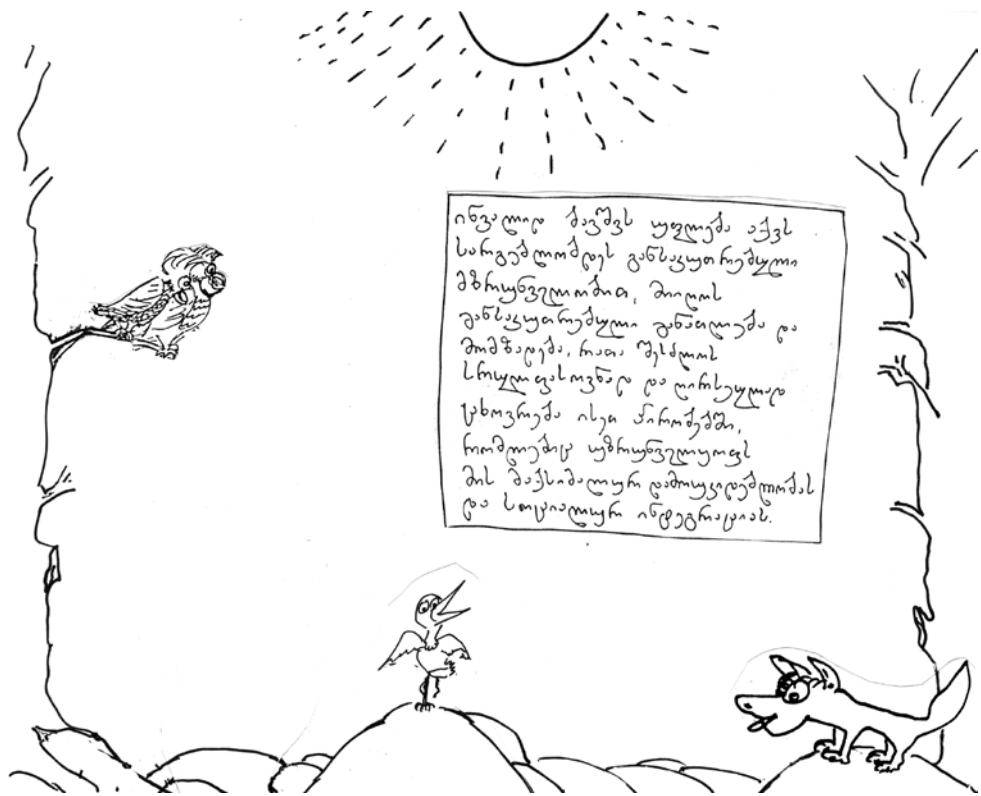 ინვალიდ ბავშვს უფლება აქვს
სარგებლობდეს განსაკუთრებული
მზრუნველობით, მიიღოს
განსაკუთრებული განათლება და
მომზადება, რათა შესძლოს
სრულფასოვნად და ღირსეულად
ცხოვრება ისეთ პირობებში,
რომლებიც უზრუნველყოფს
მის მაქსიმალურ დამოუკიდებლობას
და სოციალურ ინტეგრაციას.